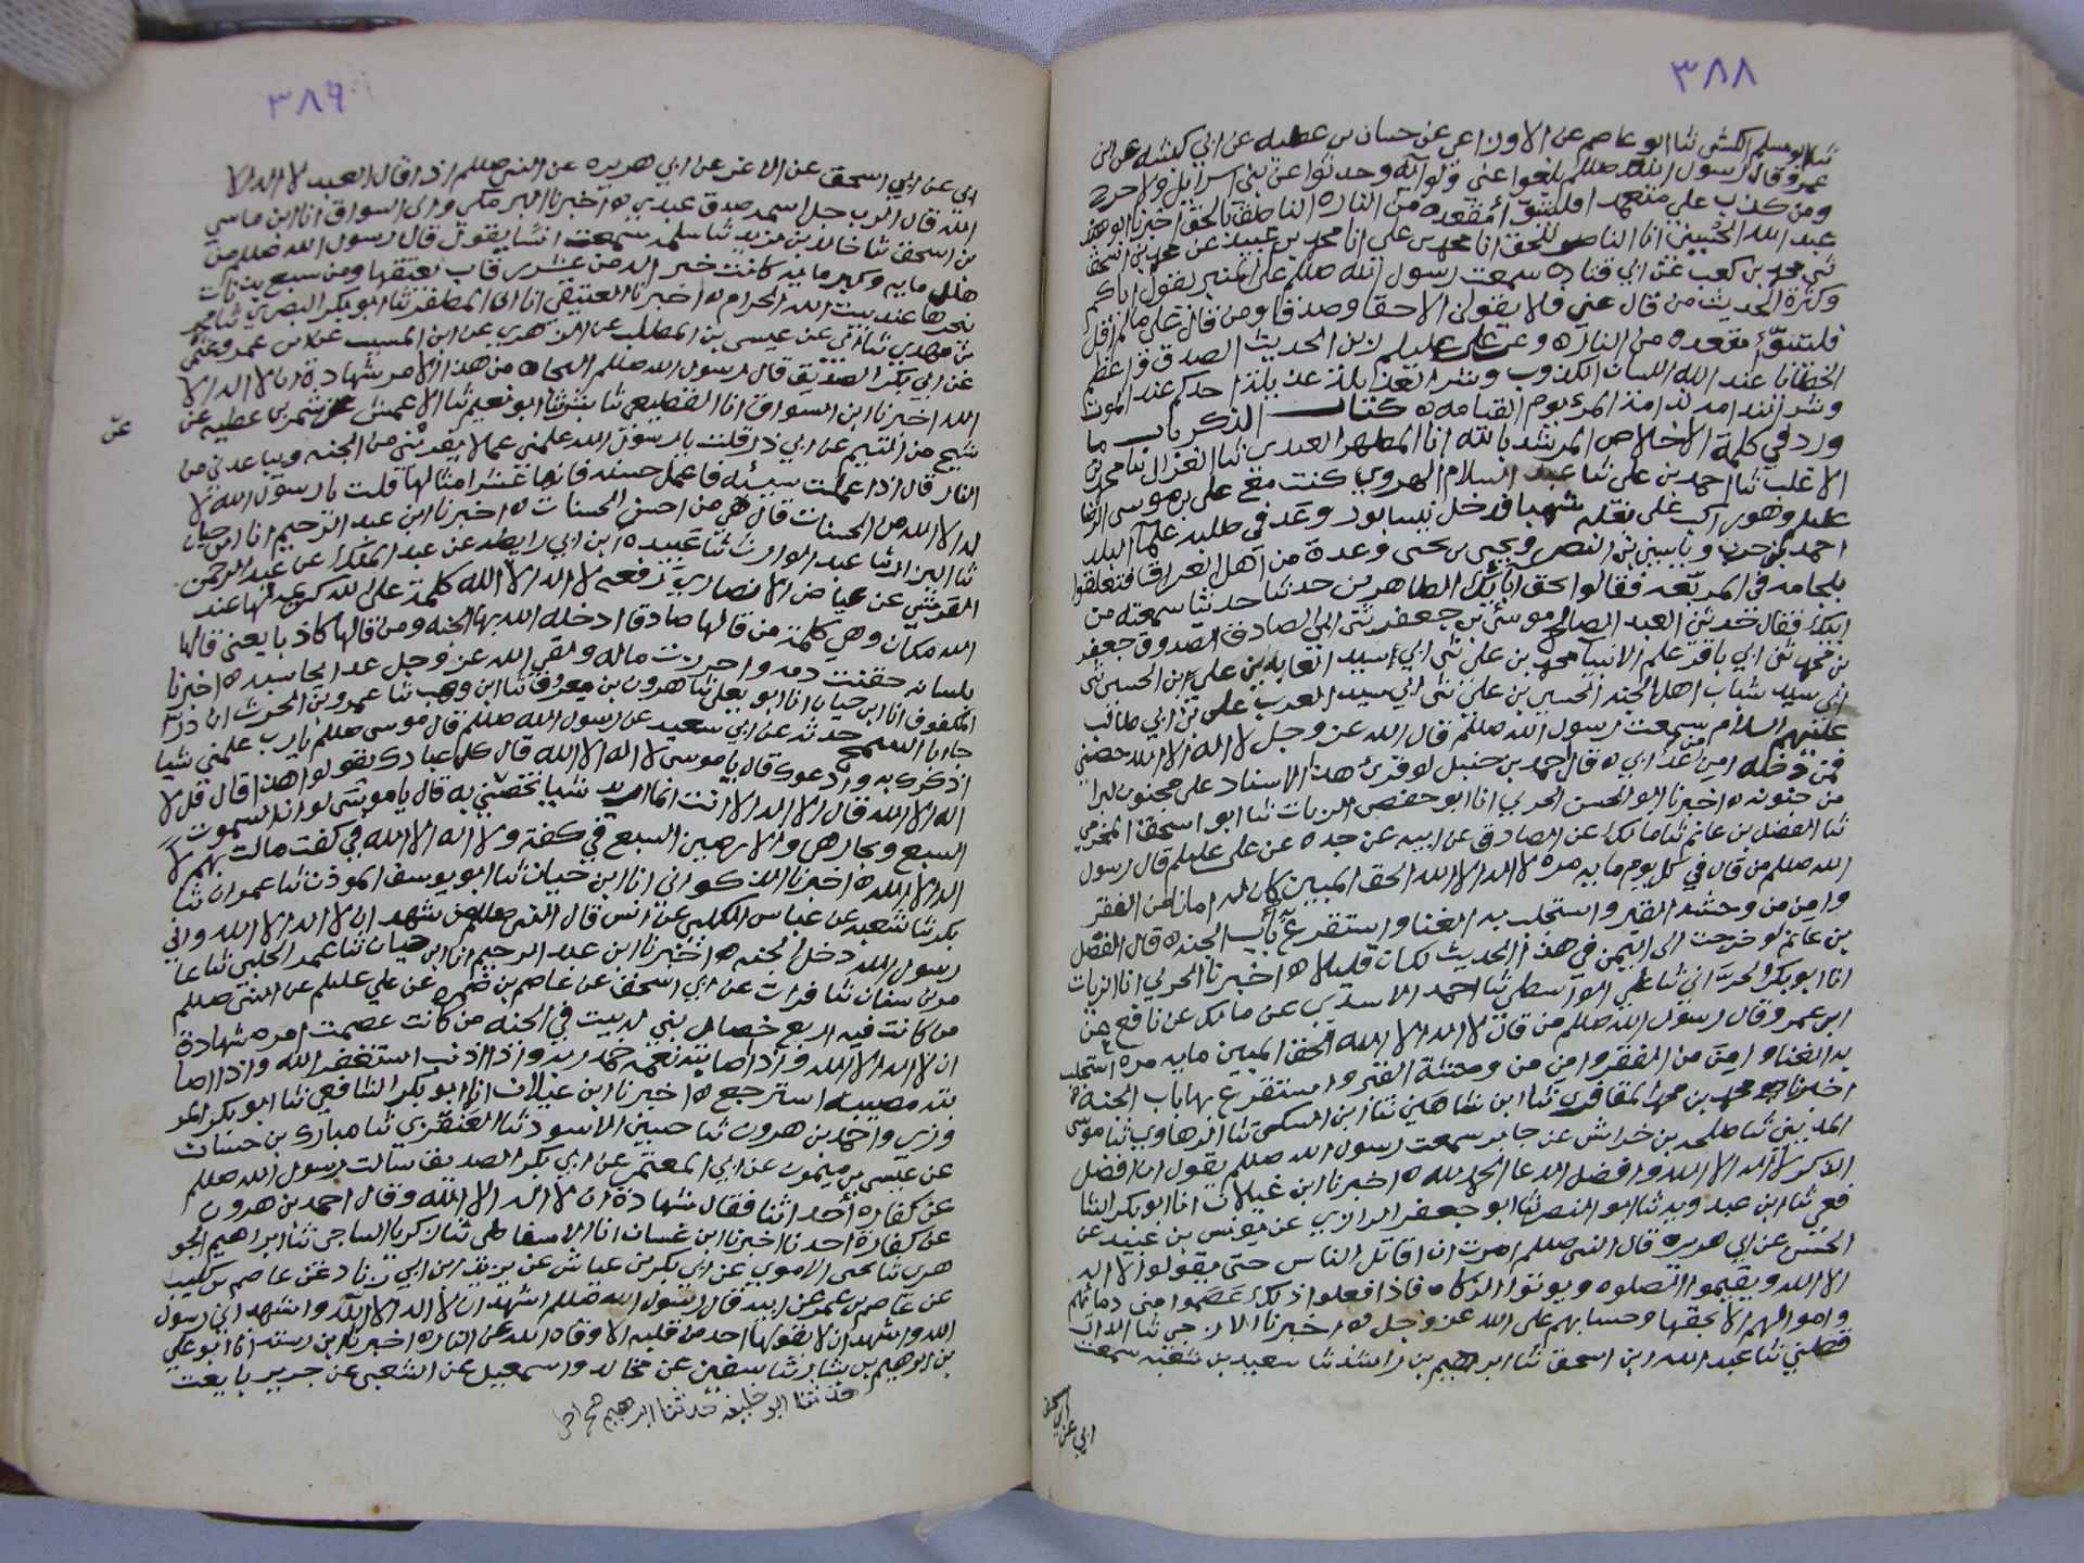 ٣٨٨
ثنا ابو مسلم الكشي ثنا ابو عاصم عن الاوزاعي عن حسان بن عطيه عن ابي كبشه عن ابن
عمرو قال رسول الله صللم بلغوا عني ولو آية وحدثوا عن بني اسرايل ولا حرج
ومن كذب علي متعمدا فليتبوّأ مقعده من الناره الناطق بالحق اخبرنا ابو
عبد الله الحسيني انا الناصر للحق انا محمد بن علي انا محمد بن عبيد عن محمد بن اسحق
ثني محمد بن كعب عن ابي قتاده سمعت رسول الله صللم على المنبر يقول اياكم
وكثرة الحديث من قال عني فلا يقولن الا حقا وصدقا ومن قال علي ما لم اقل
فليتبوّأ مقعده من الناره وعن علي عليلم زين الحديث الصدق واعظم
الخطايا عند الله اللسان الكذوب وشر العذيله عذيلة احدكم عند الموت
وشر الندامه ندامة المرء يوم القيامه ه كتاب الذكر باب ما
ورد في كلمة الاخلاص المرشد بالله انا المطهر العبدي ثنا الغزال ثنا محمد بن
الاغلب ثنا احمد بن علي ثنا عبد السلام الهروي كنت مع علي بن موسى الرضا
عليلم وهو راكب على بغله شهبا فدخل نيسابور وغد في طلبه علمآ البلد
احمد بن حرب وياسين بن النضر ويحيى بن يحيى وعدة من اهل العراق فتعلقوا
بلجامه في المربّعه فقالوا بحق آبائك الطاهرين حدثنا حديثا سمعته من
ابيك فقال حدثني العبد الصالح موسى بن جعفر ثني ابي الصادق الصدوق جعفر
بن محمد ثني ابي باقر علم الانبيآ محمد بن علي ثني ابي سيد العابدين علي بن الحسين ثني
ابي سيد شباب اهل الجنه الحسين بن علي ثني ابي سيد العرب علي بن ابي طالب
عليهم السلام سمعت رسول الله صللم قال الله عز وجل لا اله الا الله حصني
فمن دخله امن من عذابي ه قال احمد بن حنبل لو قرئ هذا الاسناد على مجنون لبرا
من جنونه ه اخبرنا ابو الحسن الحربي انا ابو حفص الزيات ثنا ابو اسحق المخرمي
ثنا الفضل بن غانم ثنا مالك عن الصادق عن ابيه عن جده عن علي عليلم قال رسول
الله صللم من قال في كل يوم مايه مره لا اله الا الله الحق المبين كان له امانا من الفقر
وامن من وحشه القبر واستجلب به الغنا واستقرع باب الجنه ه قال الفضل
بن غانم لو خرجت الى اليمن في هذا الحديث لكان قليلا ه اخبرنا الحربي انا الزيات
انا ابو بكر الحرّاني ثنا علي الواسطي ثنا احمد الاسدي عن مالك عن نافع عن
ابن عمر وقال رسول الله صللم من قال لا اله الا الله الحق المبين مايه مره استجلب
به الغنا وامن من الفقر وامن من وحشة القبر واستقرع بها باب الجنة ه
اخبرنا محمد بن محمد المقافري ثنا ابن شاهين ثنا ابن السكن ثنا الرهاوي ثنا موسى
المديني ثنا طلحه بن خراش عن جابر سمعت رسول الله صللم يقول ان افضل
الذكر لا اله الا الله وافضل الدعا الحمد لله ه اخبرنا ابن غيلان انا ابو بكر الشا
فعي ثنا ابن عبدويه ثنا ابو النضر ثنا ابو جعفر الرازي عن يونس بن عبيد عن
الحسن عن ابي هريره قال النبي صللم امرت ان اقاتل الناس حتى يقولوا لا اله
الا الله ويقيموا الصلوه ويوتوا الزكاه فاذا فعلوا ذلك عصموا مني دمائهم
واموالهم الا بحقها وحسابهم على الله عز وجل ه اخبرنا الازجي ثنا الدار
قطني ثنا عبد الله ابن اسحق ثنا ابراهيم بن راشد ثنا سعيد بن شعبه سمعت
ابي عن ابي اسحق
٣٨٩
ابي عن ابي اسحق عن الاغر عن ابي هريره عن النبي صللم اذا قال العبد لا اله الا
الله قال الرب جل اسمه صدق عبدي ه اخبرنا البرمكي وابن السواق انا ابن ماسي
بن اسحق ثنا خالد بن يزيد ثنا سلمه سمعت انسا يقول قال رسول الله صللم من
هلل مايه وكبر مايه كانت خير اله من عشر رقاب يعتقها ومن سبع بدنات
ينحرها عند بيت الله الحرام ه اخبرنا العتيقي انا ابن المظفر ثنا ابو بكر البصري ثنا محمد
بن مهدي ثنا ابي عن عيسى بن المطلب عن الزهري عن ابن المسيب عن ابن عمر وعثمن
عن ابي بكر الصديق قال رسول الله صللم النجاه من هذا الامر شهادة ان لا اله الا
الله اخبرنا ابن السواق انا القطيعي ثنا بشر ثنا ابو نعيم ثنا الاعمش عن شمر بن عطيه عن
شيخ من التيم عن ابي ذر قلت يا رسول الله علمني عملا يقربني من الجنه ويباعدني من
النار قال اذا عملت سيئه فاعمل حسنه فانها عشر امثالها قلت يا رسول الله لا
اله الا الله من الحسنات قال هي من احسن الحسنات ه اخبرنا ابن عبد الرحيم انا ابن حيان
ثنا البزار ثنا عبد الوارث ثنا عبيده ابن ابي رايطه عن عبد الملك عن عبد الرحمن
القرشي عن عياض الانصاري رفعه لا اله الا الله كلمة على الله كريمه لها عند
الله مكان وهي كلمة من قالها صادقا ادخله الله بها الجنه ومن قالها كاذبا يعني قالها
بلسانه حقنت دمه واحرزت ماله ولقي الله عز وجل غدا يحاسبه ه اخبرنا
المكفوف انا ابن حيان انا ابو يعلى ثنا هرون بن معروف ثنا ابن وهب ثنا عمرو بن الحرث ان درا
جا ابا السمح حدثه عن ابي سعيد عن رسول الله صللم قال موسى صللم يا رب علمني شيا
اذكرك به وادعوك قال يا موسى لا اله الا الله قال كل عبادك يقولوا هذا قال قل لا
اله الا الله قال لا اله الا انت انما اريد شيا تخصني به قال يا موسى لو ان السموت
السبع وبحارهن والارضين السبع في كفة ولا اله الا الله في كفت مالت بهم لا
اله الا الله ه اخبرنا الذكواني انا ابن حيان ثنا ابو يوسف الموذن ثنا عمران ثنا
بكر ثنا شعبه عن عباس الكلبي عن انس قال النبي صللم من شهد ان لا اله الا الله واني
رسول الله دخل الجنه ه اخبرنا ابن عبد الرحيم انا ابن حيان ثنا عمر الحلبي ثنا عا
مر بن سنان ثنا فرات عن ابي اسحق عن عاصم بن ضمره عن علي عليلم عن النبي صللم
من كانت فيه اربع خصال بني له بيت في الجنه من كانت عصمت امره شهادة
ان لا اله الا الله واذا اصابته نعمه حمد ربه واذا اذنب استغفر الله واذا اصا
بته مصيبه استرجع ه اخبرنا ابن غيلان انا ابو بكر الشافعي ثنا ابو بكر المر
وزي واحمد بن هرون ثنا حسين الاسود ثنا العنقزي ثنا مبارك بن حسان
عن عيسى بن ميمون عن ابي المعتمر عن ابي بكر الصديق سالت رسول الله صللم
عن كفاره أحداثنا فقال شهادة ان لا اله الا الله وقال احمد بن هرون
عن كفارة احدنا اخبرنا ابن غسان انا الاسفاطي ثنا زكريا الساجي ثنا ابراهيم الجو
هري ثنا يحيى الاموي عن ابي بكر بن عياش عن يزيد ابن ابي زناد عن عاصم بن كليب
عن عاصم بن عمر عن ابيه قال رسول الله صللم اشهد ان لا اله الا الله واشهد اني رسول
الله واشهد ان لا يقولها احد من قلبه الا وقاه الله عن الناره اخبرنا ابن رسته انا ابو علي
بن ابراهيم بن بشار ثنا سفين عن مخالد واسمعيل عن الشعبي عن جرير بايعت
حدثنا ابو خليفه حدثنا ابرهيم صح اصل
عن